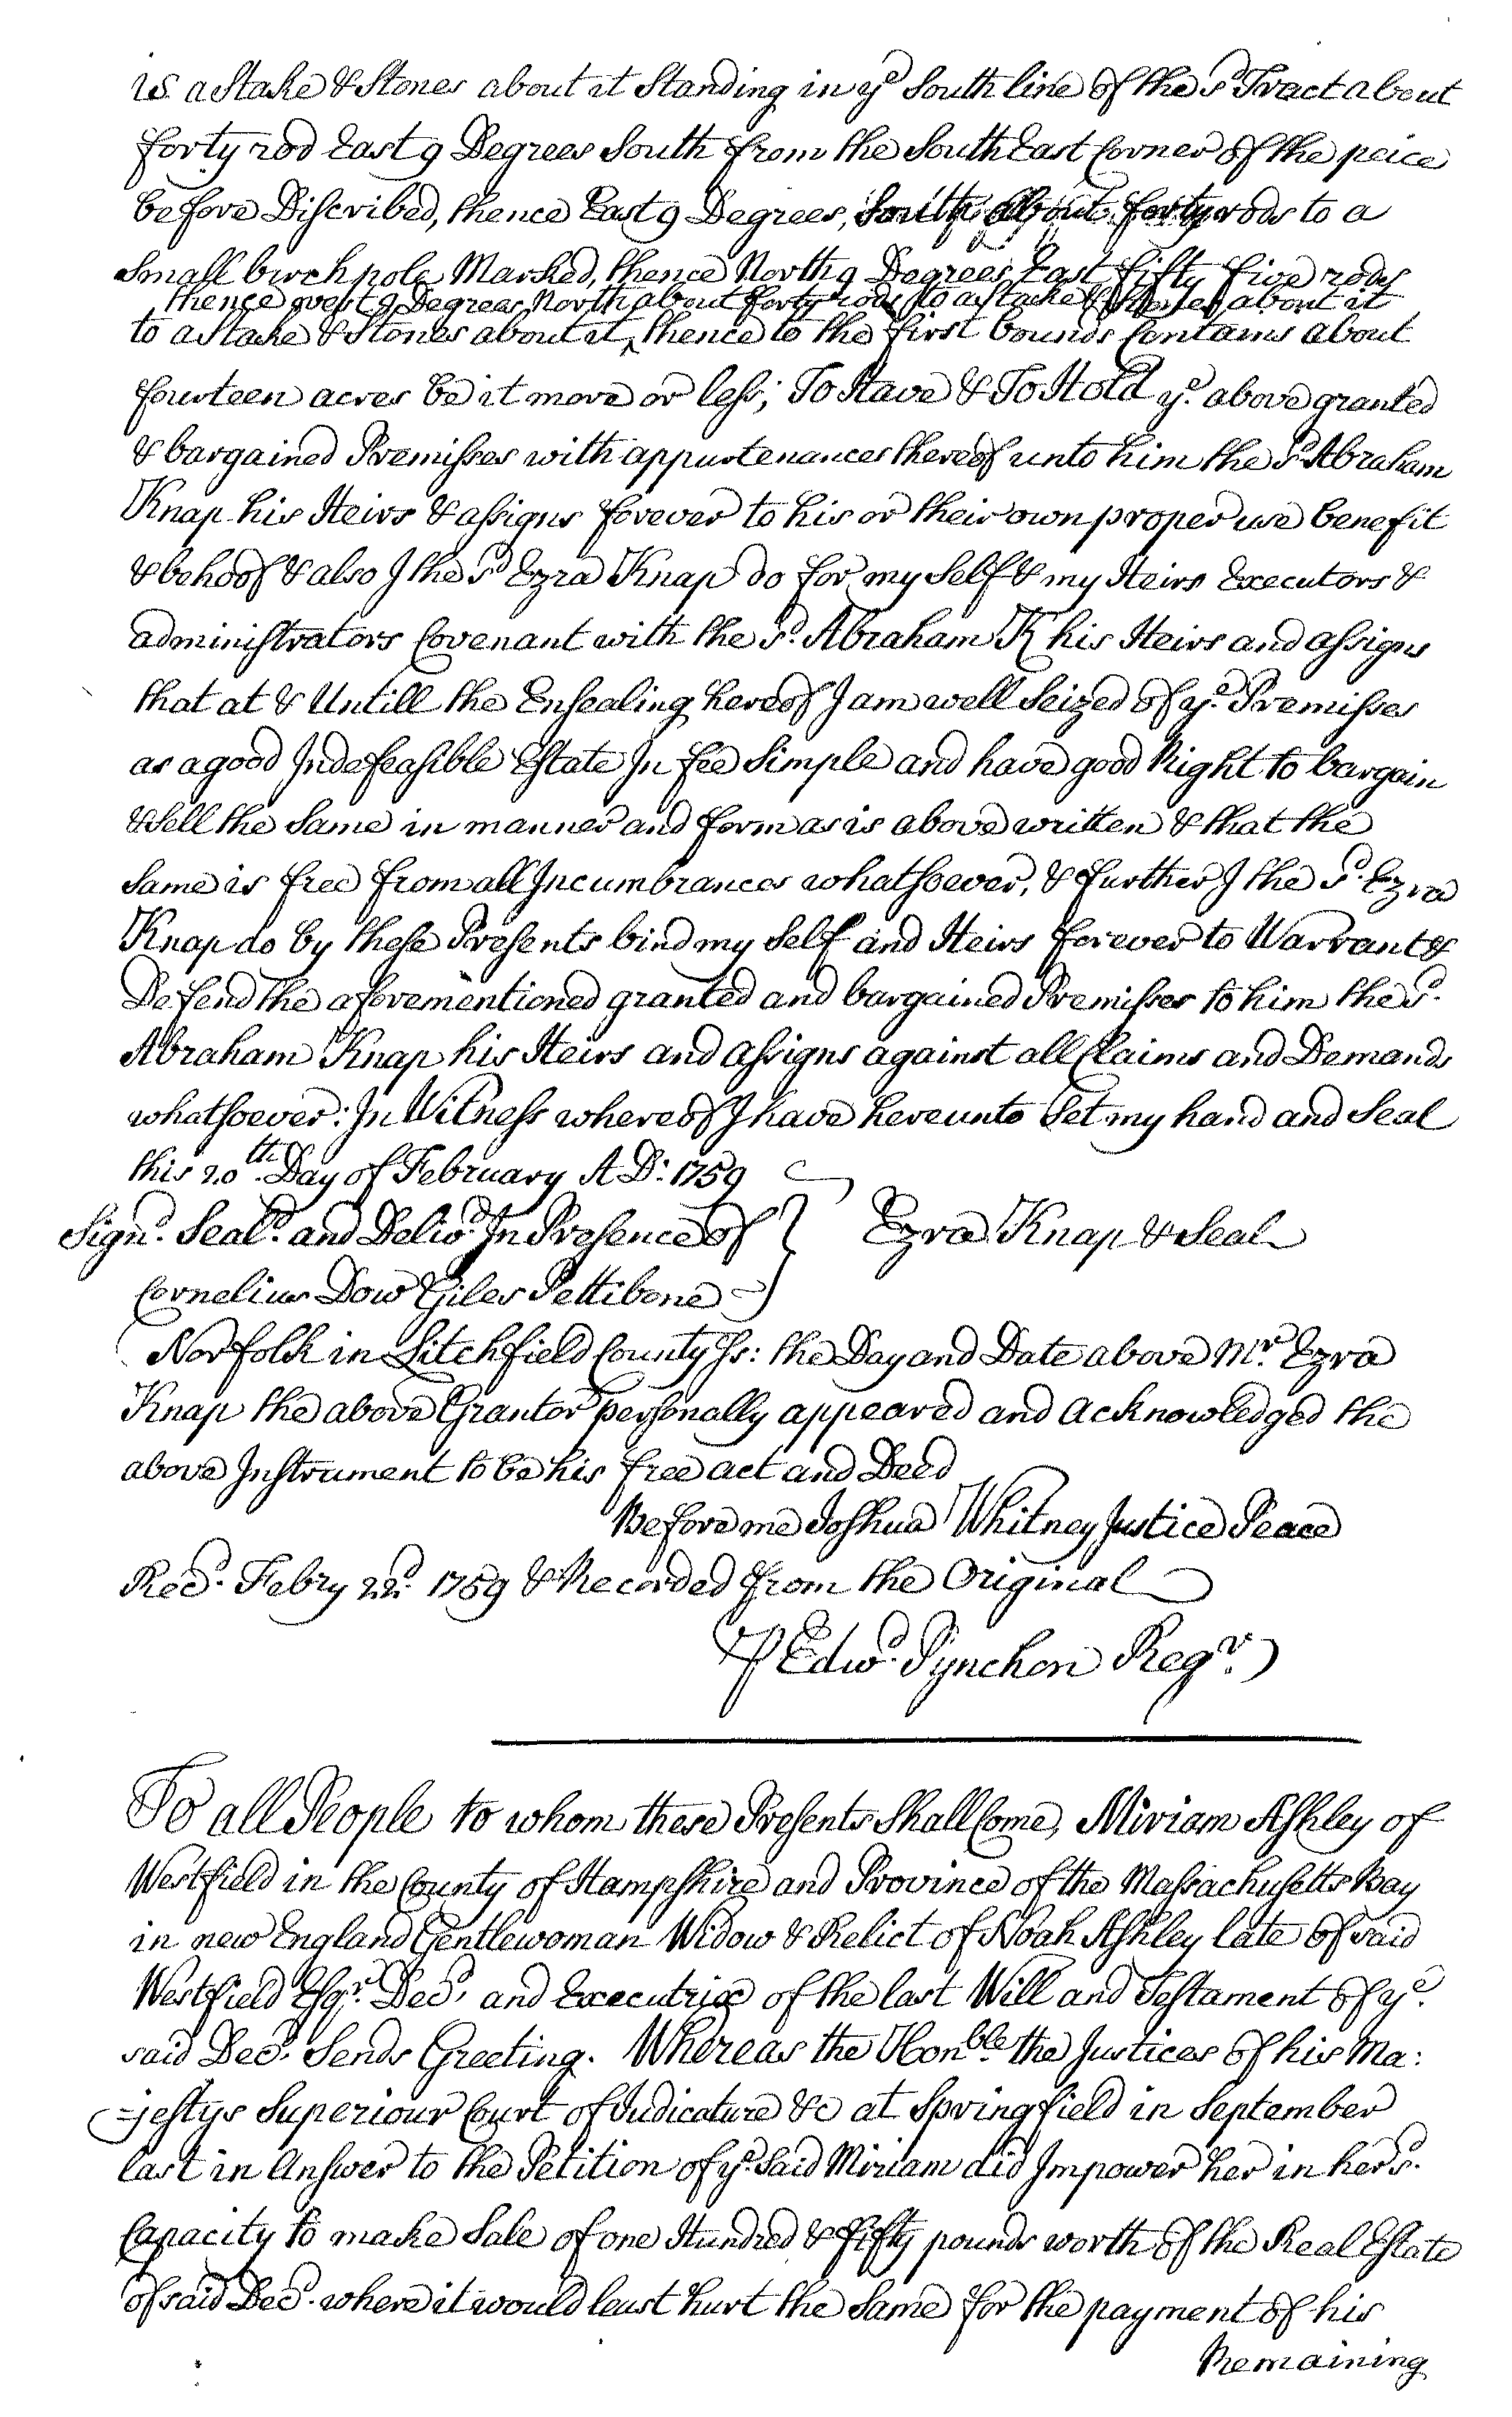 is a Stake & Stones about it Standing in ye South line of the sd Tract about
forty rod East 9 Degrees South from the South East Corner of the peice
before Discribed, thence East 9 Degrees, South about forty rods to a
Small birch pole Marked, thence North 9 Degrees East fifty five rods
thence west 9 Degrees North about forty rods to a Stake & Stones about it
to a Stake & Stones about it, ^ thence to the first bounds Contains about
fourteen acres be it more or less; To Have & To Hold ye above granted
& bargained Premisses with appurtenances thereof unto him the sd Abraham
Knap his Heirs & assigns forever to his or their own proper use benefit
& behoof & also I the sd Ezra Knap do for my Self & my Heirs Executors &
administrators Covenant with the sd. Abraham K his Heirs and assigns
that at & Untill the Ensealing hereof I am well Seized of ye. Premisses
as a good Indefeasible Estate In fee Simple and have good Right to bargain
& Sell the Same in manner and form as is above written & that the
Same is free from all Incumbrances whatsoever, & further I the sd. Ezra
Knap do by these Presents bind my Self and Heirs forever to Warrant &
Defend the aforementioned granted and bargained Premisses to him the sd.
Abraham Knap his Heirs and assigns against all Claims and Demands
whatsoever: In Witness whereof I have hereunto Set my hand and Seal
this 20th. Day of February A D: 1759
Signd. Seald. and Delivd. In Presence of } Ezra Knap & Seal
Cornelius Dow Giles Pettibone
Norfolk in Litchfield County Ss: the Day and Date above Mr. Ezra
Knap the above Grantor personally appeared and acknowledged the
above Instrument to be his free act and Deed
Before me Joshua Whitney Justice Peace
Recd. Febry 22d. 1759 & Recorded from the Original
P Edwd. Pynchon Regr.
To all People to whom these Presents Shall Come, Miriam Ashley of
Westfield in the County of Hampshire and Province of the Massachusetts Bay
in new England Gentlewoman Widow & Relict of Noah Ashley late of said
Westfield Esqr. Decd, and Executrix of the last Will and Testament of ye.
said Decd. Sends Greeting. Whereas the Honble. the Justices of his Ma:
=jestys Superiour Court of Judicature &c at Springfield in September
last in Answer to the Petition of ye. Said Miriam did Impower her in her sd.
Capacity to make Sale of one Hundred & fifty pounds worth of the Real Estate
of said Decd. where it would least hurt the Same for the payment of his
Remaining